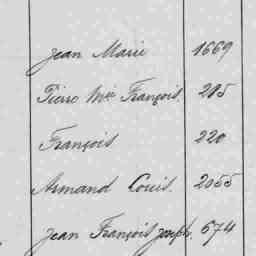 Jean Marie 1669
Pierre Mie François. 285
François 220
Armand Louis. 2055
Jean François Joseph. 674